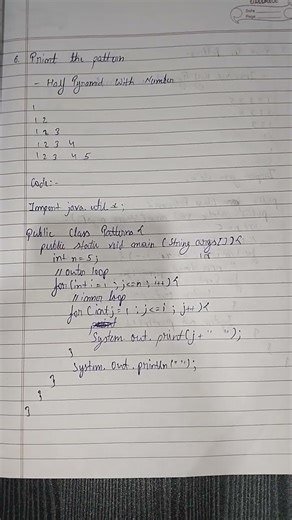 CLASSMATE
Date
Page
6. Print the pattern
- Half Pyramid with Number
1
1 2
1 2 3
1 2 3 4
1 2 3 4 5
Code:-
Import java util *;
Public Class Patterns{
public static void main (String args[]){
int n=5;
// outer loop
for(int i=1 ; i<=n ; i++){
// inner loop
for (int j=1 ; j<=i ; j++){
System. out. print(j+" ");
}
System. Out. println(" ");
}
}
}